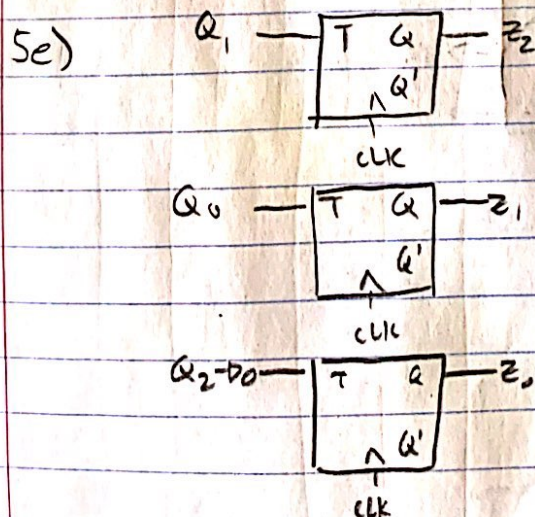 5e)
Q₁ T Q Z₂
Q'
CLK
Q₀ T Q Z₁
Q'
CLK
Q₂ T Q Z₀
Q'
CLK